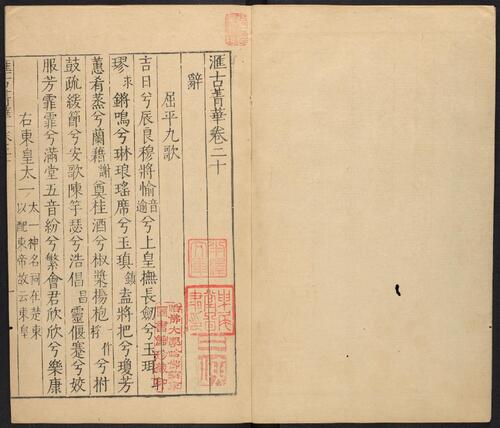 滙古菁華卷二十
辭
屈平九歌
吉日兮辰良穆將愉音逾兮上皇撫長劍兮玉珥
璆求鏘鳴兮琳琅瑤席兮玉瑱鎮盍將把兮瓊芳
蕙肴蒸兮蘭藉謝奠桂酒兮椒漿揚枹一作桴兮拊
鼓疏緩節兮安歌陳竽瑟兮浩倡昌靈偃蹇兮姣
服芳菲菲兮滿堂五音紛兮繁會君欣欣兮樂康
右東皇太一
太一神名祠在楚東
以配東帝故云東皇
哈佛大學哈佛燕京
圖書館珍藏印